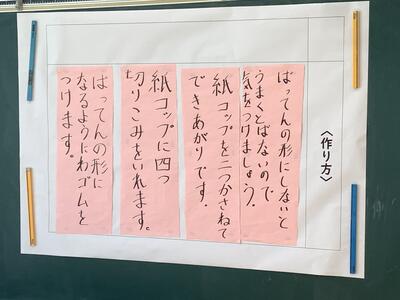 〈作り方〉
ばってんの形にしないと
うまくとばないので
気をつけましょう。
紙コップを二つかさねて
できあがりです。
紙コップに四つ
切りこみをいれます。
ばってんの形に
なるようにわゴムを
つけます。